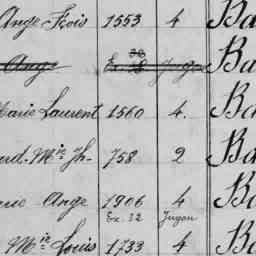 Ange Frois 1553 4 Ba
Ange Ex. 38 Jugon Ba
Marie Laurent 1560 4. Ba
Mie Jh- 758 2 Ba
Ange 1906 4 Ba
Ex. 32 Jugon
Mie Louis 1733 4 Ba